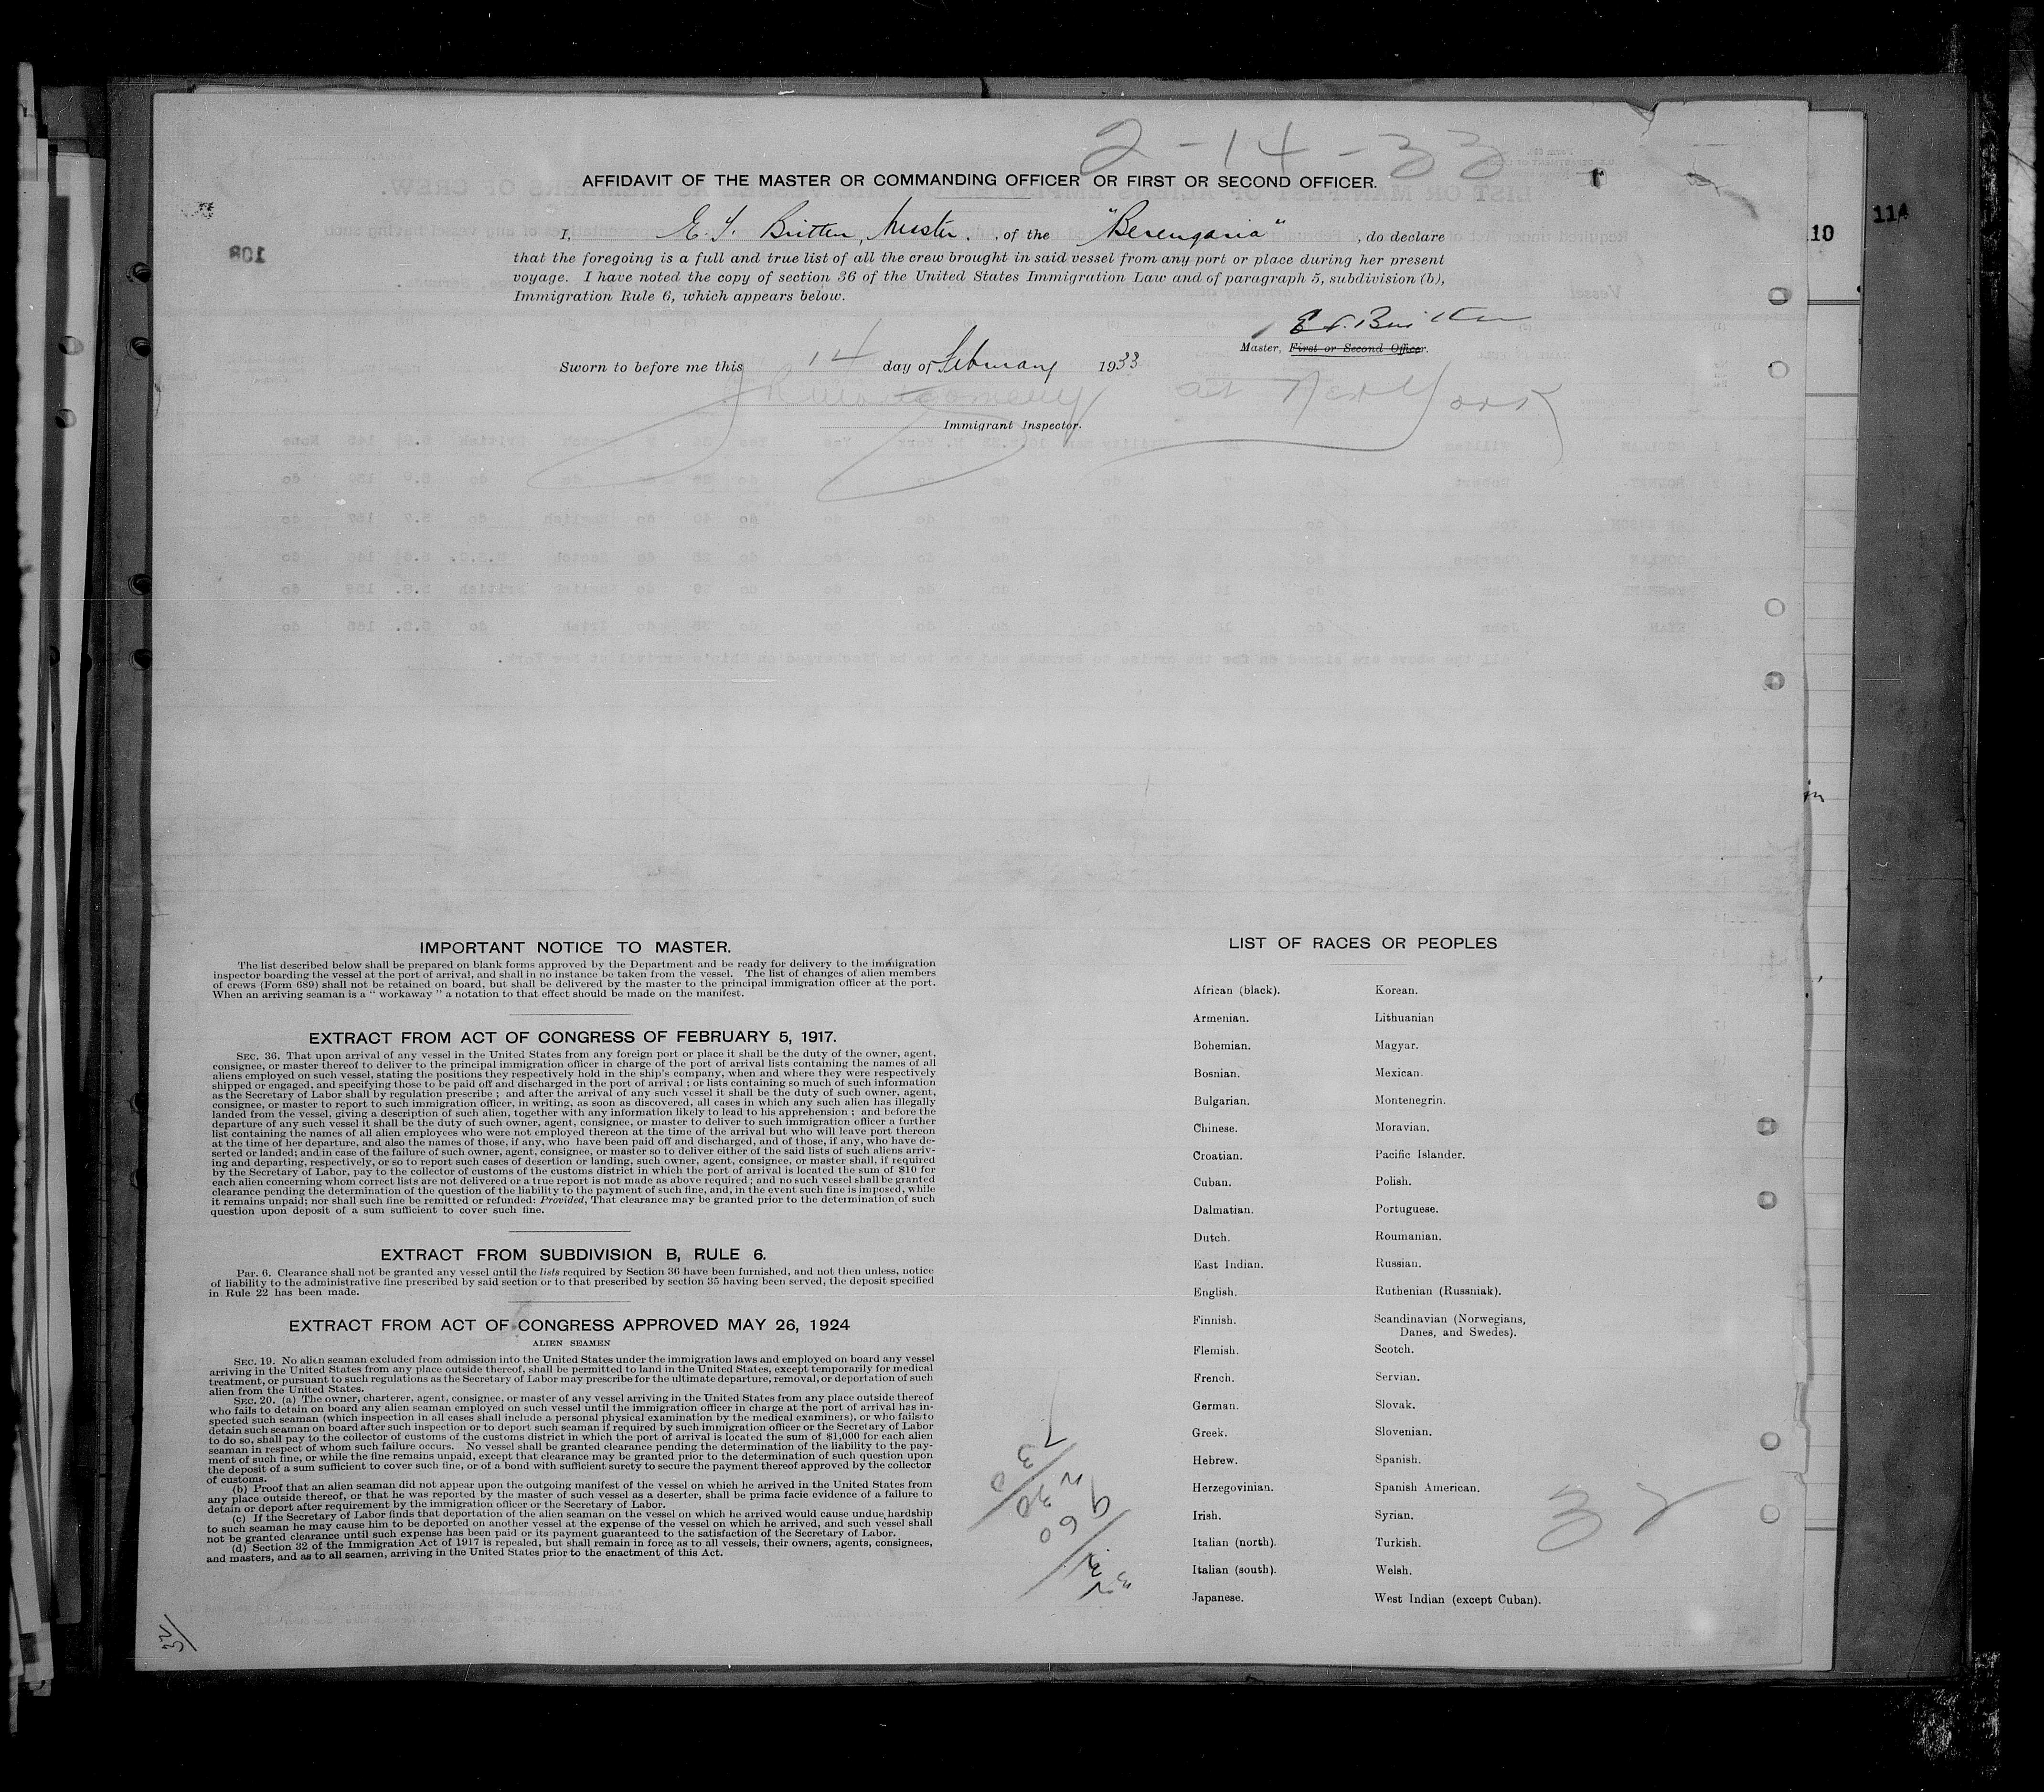 2-14-33
AFFIDAVIT OF THE MASTER OR COMMANDING OFFICER OR FIRST OR SECOND OFFICER.
I, E. T. Britten, Master, of the "Berengaria", do declare
that the foregoing is a full and true list of all the crew brought in said vessel from any port or place during her present
voyage. I have noted the copy of section 36 of the United States Immigration Law and of paragraph 5, subdivision (b),
Immigration Rule 6, which appears below.
E.T. Britten
Master, First or Second Officer.
Sworn to before me this 14 day of February 1933
at New York
Immigrant Inspector.
110
114
IMPORTANT NOTICE TO MASTER.
The list described below shall be prepared on blank forms approved by the Department and be ready for delivery to the immigration
inspector boarding the vessel at the port of arrival, and shall in no instance be taken from the vessel. The list of changes of alien members
of crews (Form 689) shall not be retained on board, but shall be delivered by the master to the principal immigration officer at the port.
When an arriving seaman is a " workaway " a notation to that effect should be made on the manifest.
EXTRACT FROM ACT OF CONGRESS OF FEBRUARY 5, 1917.
SEC. 36. That upon arrival of any vessel in the United States from any foreign port or place it shall be the duty of the owner, agent,
consignee, or master thereof to deliver to the principal immigration officer in charge of the port of arrival lists containing the names of all
aliens employed on such vessel, stating the positions they respectively hold in the ship's company, when and where they were respectively
shipped or engaged, and specifying those to be paid off and discharged in the port of arrival ; or lists containing so much of such information
as the Secretary of Labor shall by regulation prescribe ; and after the arrival of any such vessel it shall be the duty of such owner, agent,
consignee, or master to report to such immigration officer, in writing, as soon as discovered, all cases in which any such alien has illegally
landed from the vessel, giving a description of such alien, together with any information likely to lead to his apprehension ; and before the
departure of any such vessel it shall be the duty of such owner, agent, consignee, or master to deliver to such immigration officer a further
list containing the names of all alien employees who were not employed thereon at the time of the arrival but who will leave port thereon
at the time of her departure, and also the names of those, if any, who have been paid off and discharged, and of those, if any, who have de-
serted or landed; and in case of the failure of such owner, agent, consignee, or master so to deliver either of the said lists of such aliens arriv-
ing and departing, respectively, or so to report such cases of desertion or landing, such owner, agent, consignee, or master shall, if required
by the Secretary of Labor, pay to the collector of customs of the customs district in which the port of arrival is located the sum of $10 for
each alien concerning whom correct lists are not delivered or a true report is not made as above required ; and no such vessel shall be granted
clearance pending the determination of the question of the liability to the payment of such fine, and, in the event such fine is imposed, while
it remains unpaid; nor shall such fine be remitted or refunded: Provided, That clearance may be granted prior to the determination of such
question upon deposit of a sum sufficient to cover such fine.
EXTRACT FROM SUBDIVISION B, RULE 6.
Par. 6. Clearance shall not be granted any vessel until the lists required by Section 36 have been furnished, and not then unless, notice
of liability to the administrative fine prescribed by said section or to that prescribed by section 35 having been served, the deposit specified
in Rule 22 has been made.
EXTRACT FROM ACT OF CONGRESS APPROVED MAY 26, 1924
ALIEN SEAMEN
SEC. 19. No alien seaman excluded from admission into the United States under the immigration laws and employed on board any vessel
arriving in the United States from any place outside thereof, shall be permitted to land in the United States, except temporarily for medical
treatment, or pursuant to such regulations as the Secretary of Labor may prescribe for the ultimate departure, removal, or deportation of such
alien from the United States.
SEC. 20. (a) The owner, charterer, agent, consignee, or master of any vessel arriving in the United States from any place outside thereof
who fails to detain on board any alien seaman employed on such vessel until the immigration officer in charge at the port of arrival has in-
spected such seaman (which inspection in all cases shall include a personal physical examination by the medical examiners), or who fails to
detain such seaman on board after such inspection or to deport such seaman if required by such immigration officer or the Secretary of Labor
to do so, shall pay to the collector of customs of the customs district in which the port of arrival is located the sum of $1,000 for each alien
seaman in respect of whom such failure occurs. No vessel shall be granted clearance pending the determination of the liability to the pay-
ment of such fine, or while the fine remains unpaid, except that clearance may be granted prior to the determination of such question upon
the deposit of a sum sufficient to cover such fine, or of a bond with sufficient surety to secure the payment thereof approved by the collector
of customs.
(b) Proof that an alien seaman did not appear upon the outgoing manifest of the vessel on which he arrived in the United States from
any place outside thereof, or that he was reported by the master of such vessel as a deserter, shall be prima facie evidence of a failure to
detain or deport after requirement by the immigration officer or the Secretary of Labor.
(c) If the Secretary of Labor finds that deportation of the alien seaman on the vessel on which he arrived would cause undue hardship
to such seaman he may cause him to be deported on another vessel at the expense of the vessel on which he arrived, and such vessel shall
not be granted clearance until such expense has been paid or its payment guaranteed to the satisfaction of the Secretary of Labor.
(d) Section 32 of the Immigration Act of 1917 is repealed, but shall remain in force as to all vessels, their owners, agents, consignees,
and masters, and as to all seamen, arriving in the United States prior to the enactment of this Act.
LIST OF RACES OR PEOPLES
African (black). Korean.
Armenian. Lithuanian
Bohemian. Magyar.
Bosnian. Mexican.
Bulgarian. Montenegrin.
Chinese. Moravian.
Croatian. Pacific Islander.
Cuban. Polish.
Dalmatian. Portuguese.
Dutch. Roumanian.
East Indian. Russian.
English. Ruthenian (Russniak).
Finnish. Scandinavian (Norwegians,
Danes, and Swedes).
Flemish. Scotch.
French. Servian.
German. Slovak.
Greek. Slovenian.
Hebrew. Spanish.
Herzegovinian. Spanish American.
Irish. Syrian.
Italian (north). Turkish.
Italian (south). Welsh.
Japanese. West Indian (except Cuban).
32
32